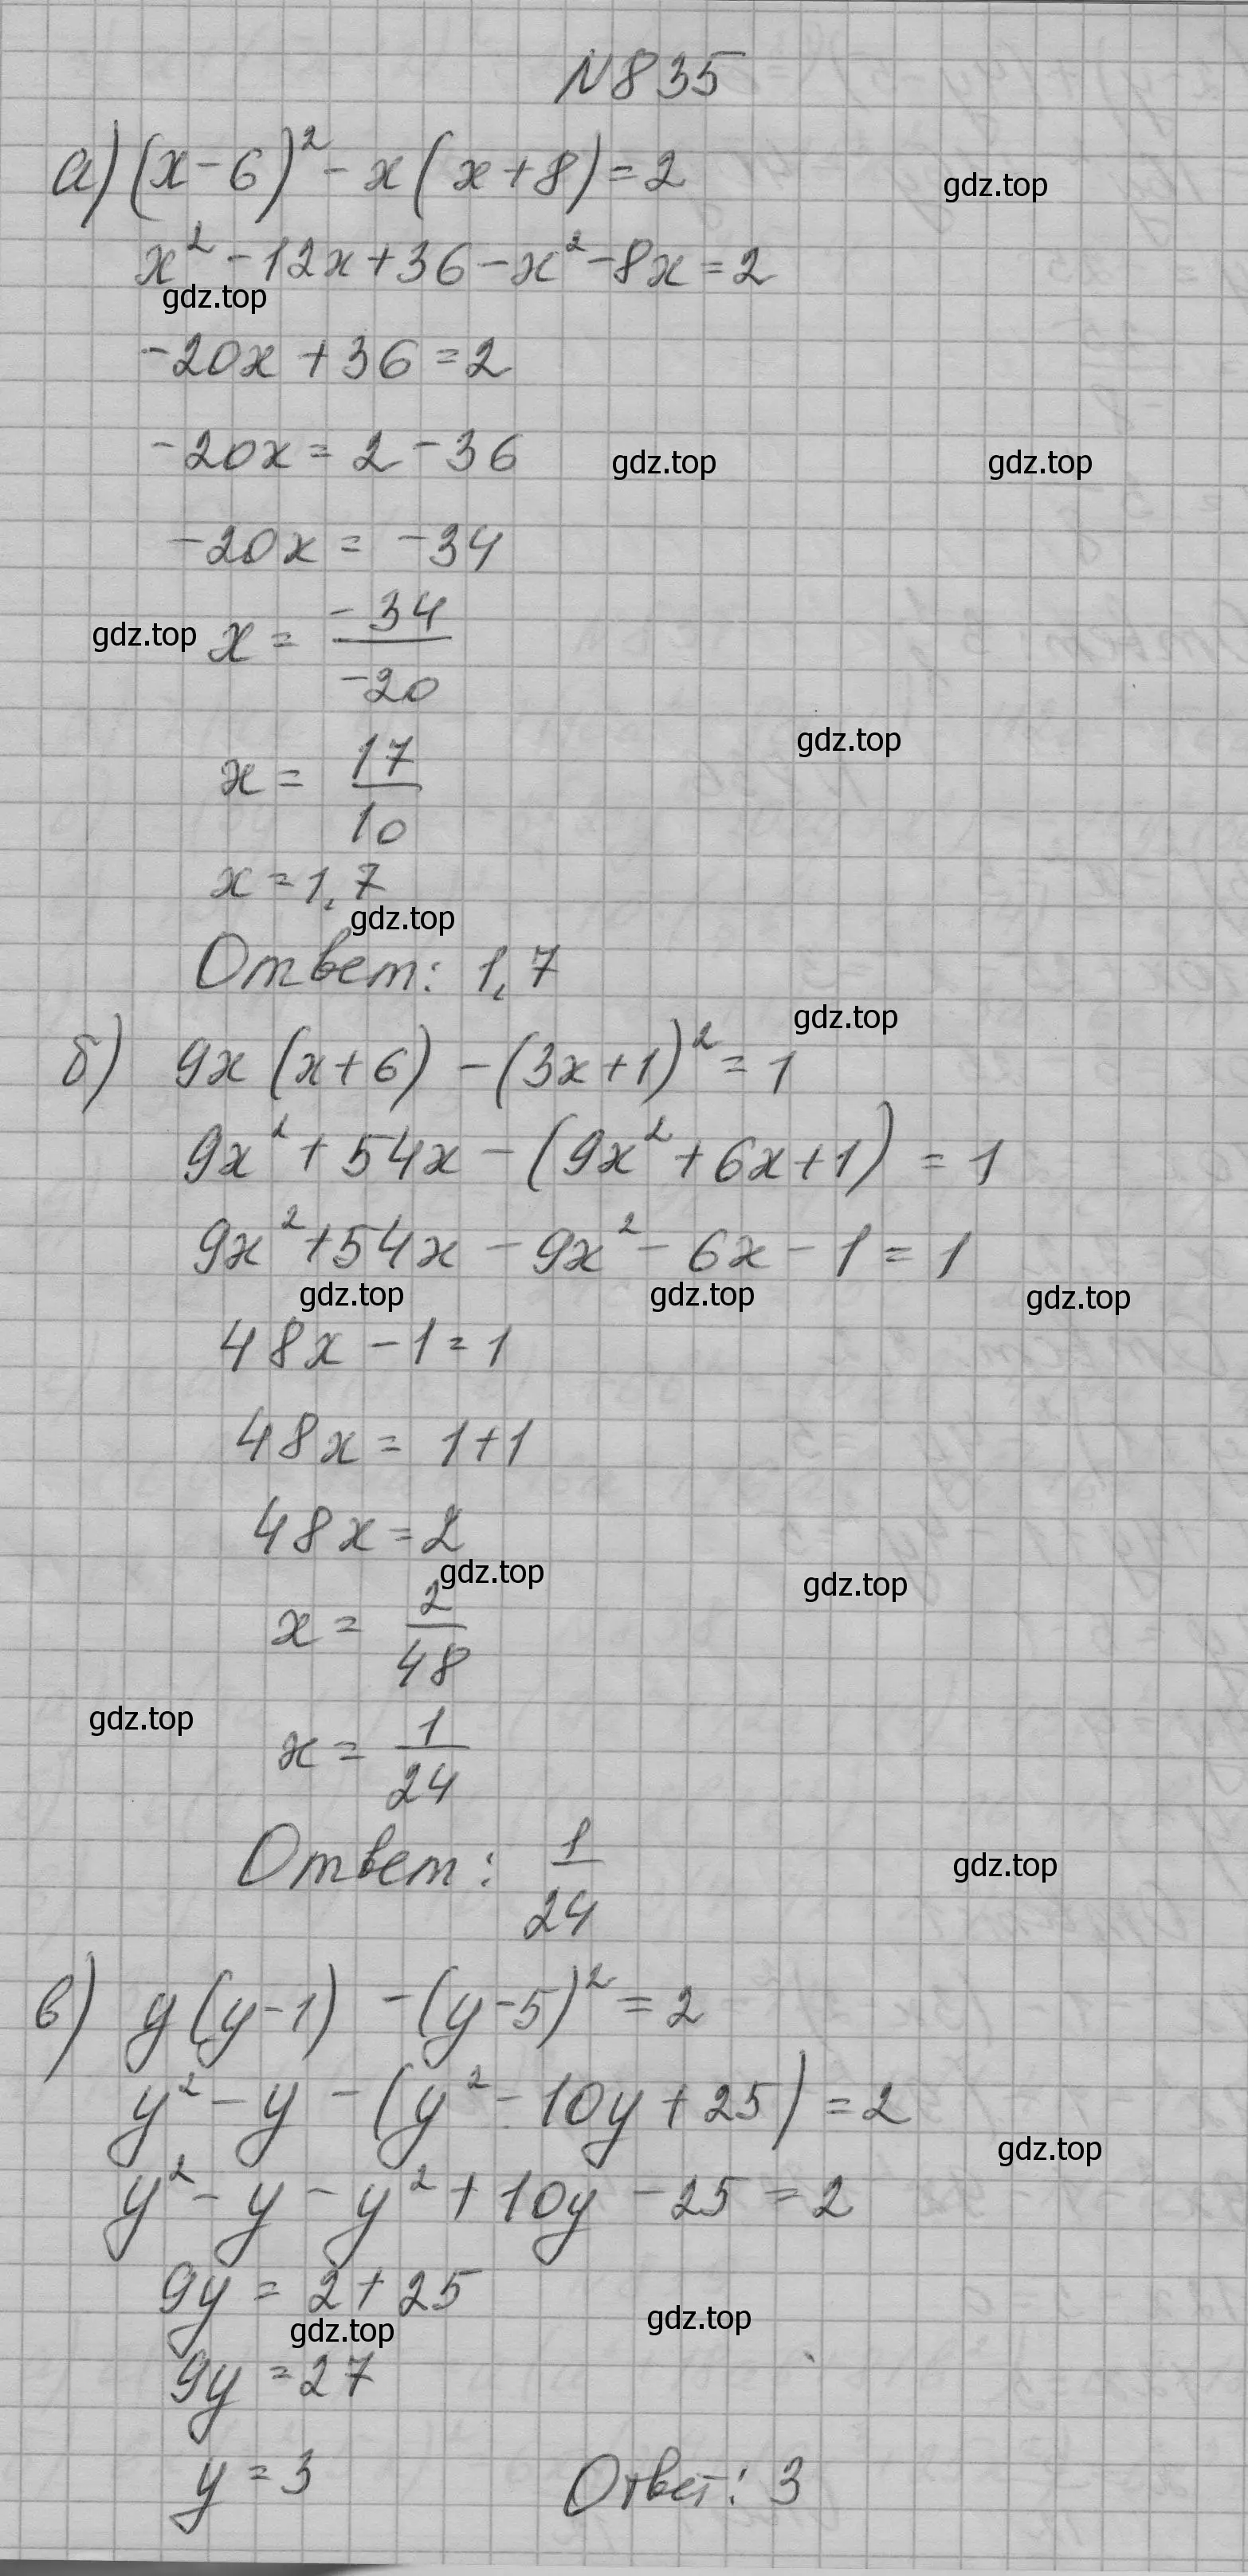 №835
а) (x-6)² - x(x+8) = 2
gdz.top
x² - 12x + 36 - x² - 8x = 2
gdz.top
-20x + 36 = 2
-20x = 2 - 36
gdz.top gdz.top
-20x = -34
gdz.top x = -34/-20
gdz.top
x = 17/10
x = 1,7
gdz.top
Ответ: 1,7
gdz.top
б) 9x(x+6) - (3x+1)² = 1
9x² + 54x - (9x² + 6x + 1) = 1
9x² + 54x - 9x² - 6x - 1 = 1
gdz.top gdz.top gdz.top
48x - 1 = 1
48x = 1+1
48x = 2
gdz.top gdz.top
x = 2/48
gdz.top
x = 1/24
Ответ: 1/24
gdz.top
в) y(y-1) - (y-5)² = 2
y² - y - (y² - 10y + 25) = 2
gdz.top
y² - y - y² + 10y - 25 = 2
9y = 2 + 25
gdz.top gdz.top
9y = 27
y = 3 Ответ: 3